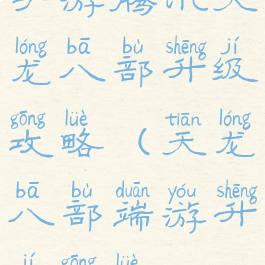 手游腾讯天
lóng bā bù shēng jí
龙八部升级
gōng lüè tiān lóng
攻略（天龙
bā bù duān yóu shēng
八部端游升
jí gōng lüè